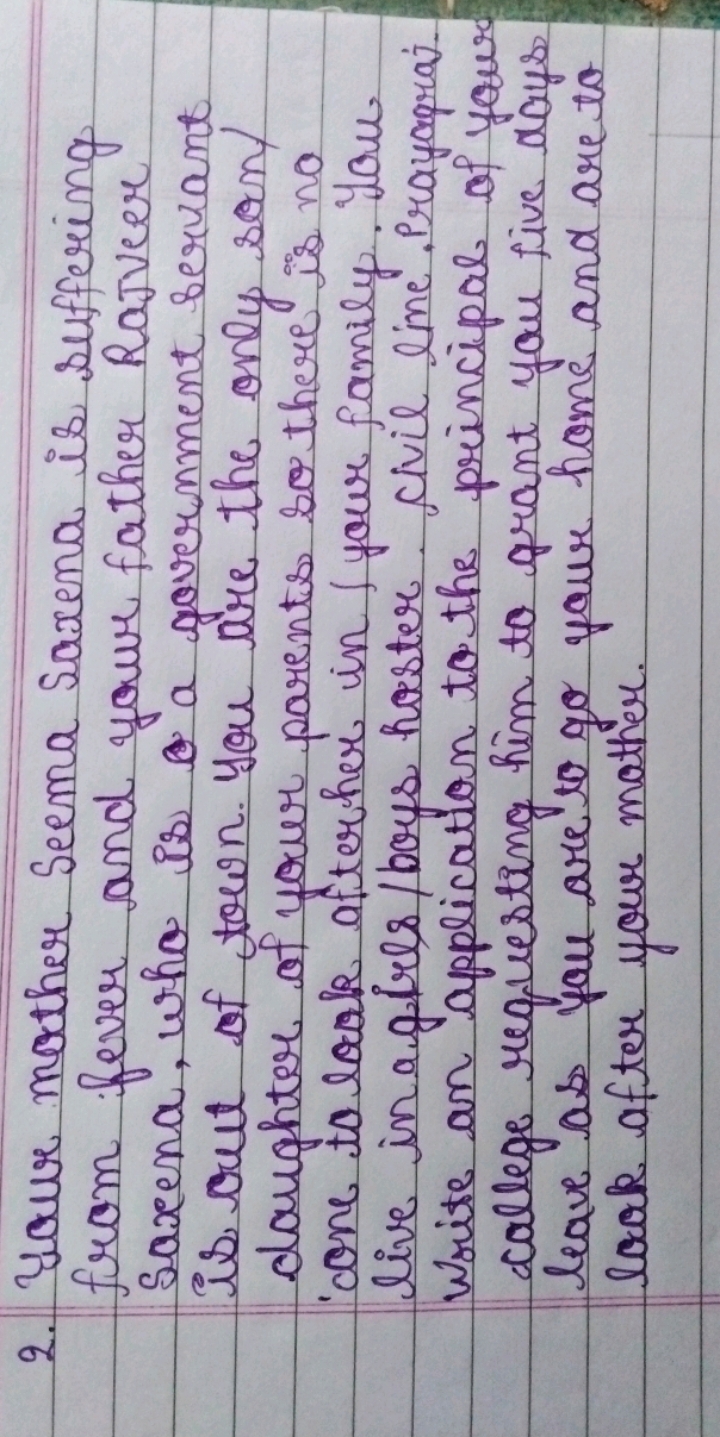 2. Your mother Seema Saxena is suffering
from fever and your father Rajveer
Saxena, who is a government servant
is out of town. You are the only son/
daughter of your parents so there is no
one to look after her in your family. You
live in a girls/boys hoster civil line, Prayagraj.
Write an application to the principal of your
college requesting him to grant you five days
leave as you are to go your home and are to
look after your mother.